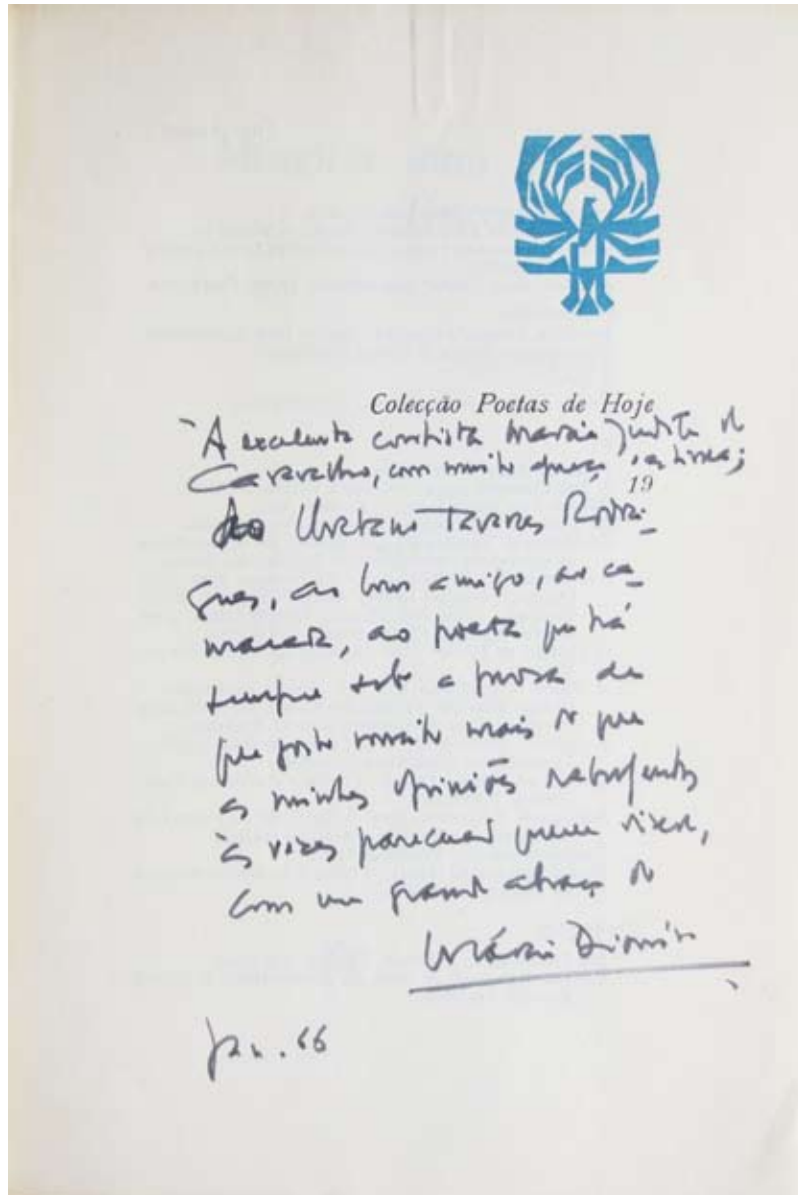 Colecção Poetas de Hoje
À excelente contista Maria Judite de
Carvalho, com muito apreço
19
Ao Urbano Tavares Rodri-
gues, ao bom amigo, ao ca-
marada, ao poeta que há
sempre sob a prosa de
que gosto muito mais do que
as minhas opiniões rabujentas
às vezes parecem querer dizer,
com um grande abraço do
Mário Dionísio
Jan. 66